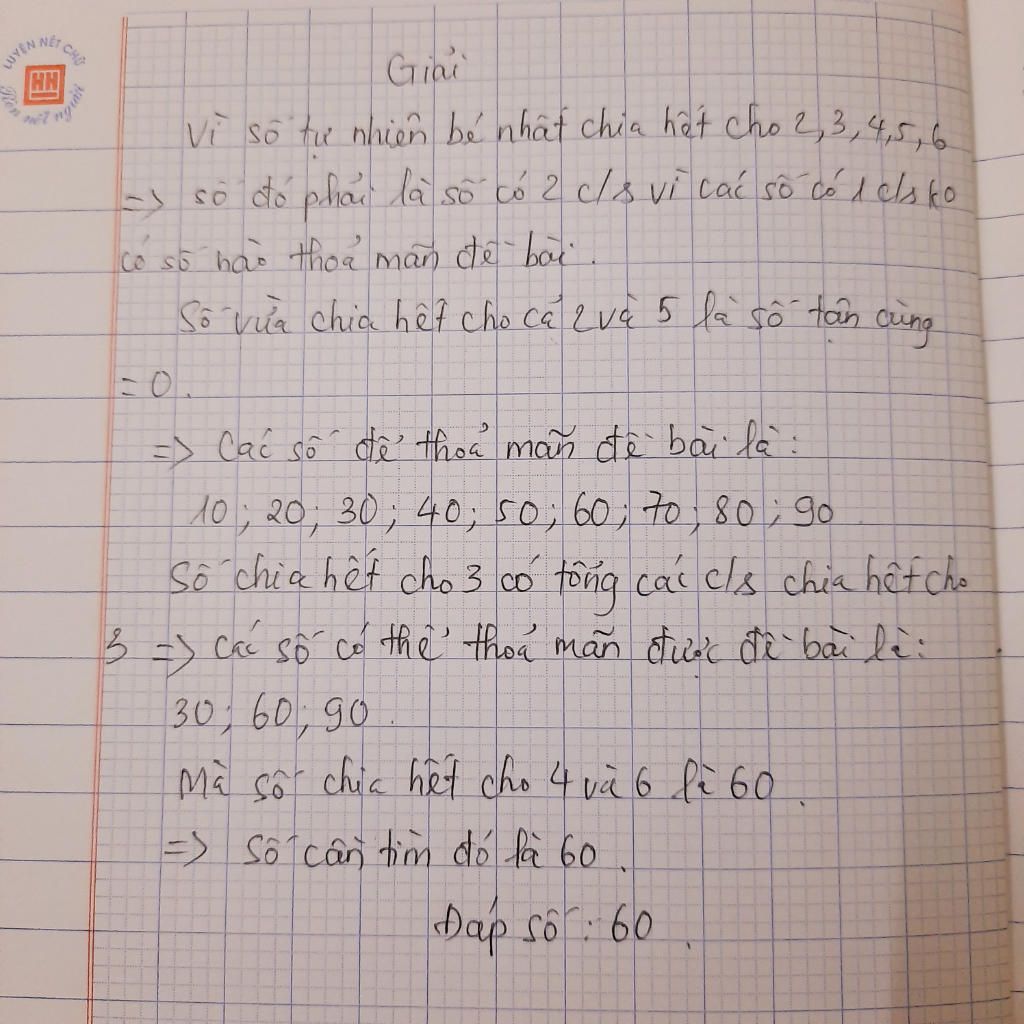 LUYỆN NÉT CHỮ
HH
Rèn nết người
Giải
Vì số tự nhiên bé nhất chia hết cho 2, 3, 4, 5, 6
=> số đó phải là số có 2 c/s vì các số có 1 c/s ko
có số nào thoả mãn đề bài.
Số vừa chia hết cho cả 2 và 5 là số tận cùng
= 0.
=> Các số để thoả mãn đề bài là:
10; 20; 30; 40; 50; 60; 70; 80; 90
Số chia hết cho 3 có tổng các c/s chia hết cho
3 => Các số có thể thoả mãn được đề bài là:
30; 60; 90.
Mà số chia hết cho 4 và 6 là 60.
=> Số cần tìm đó là 60.
Đáp số: 60.